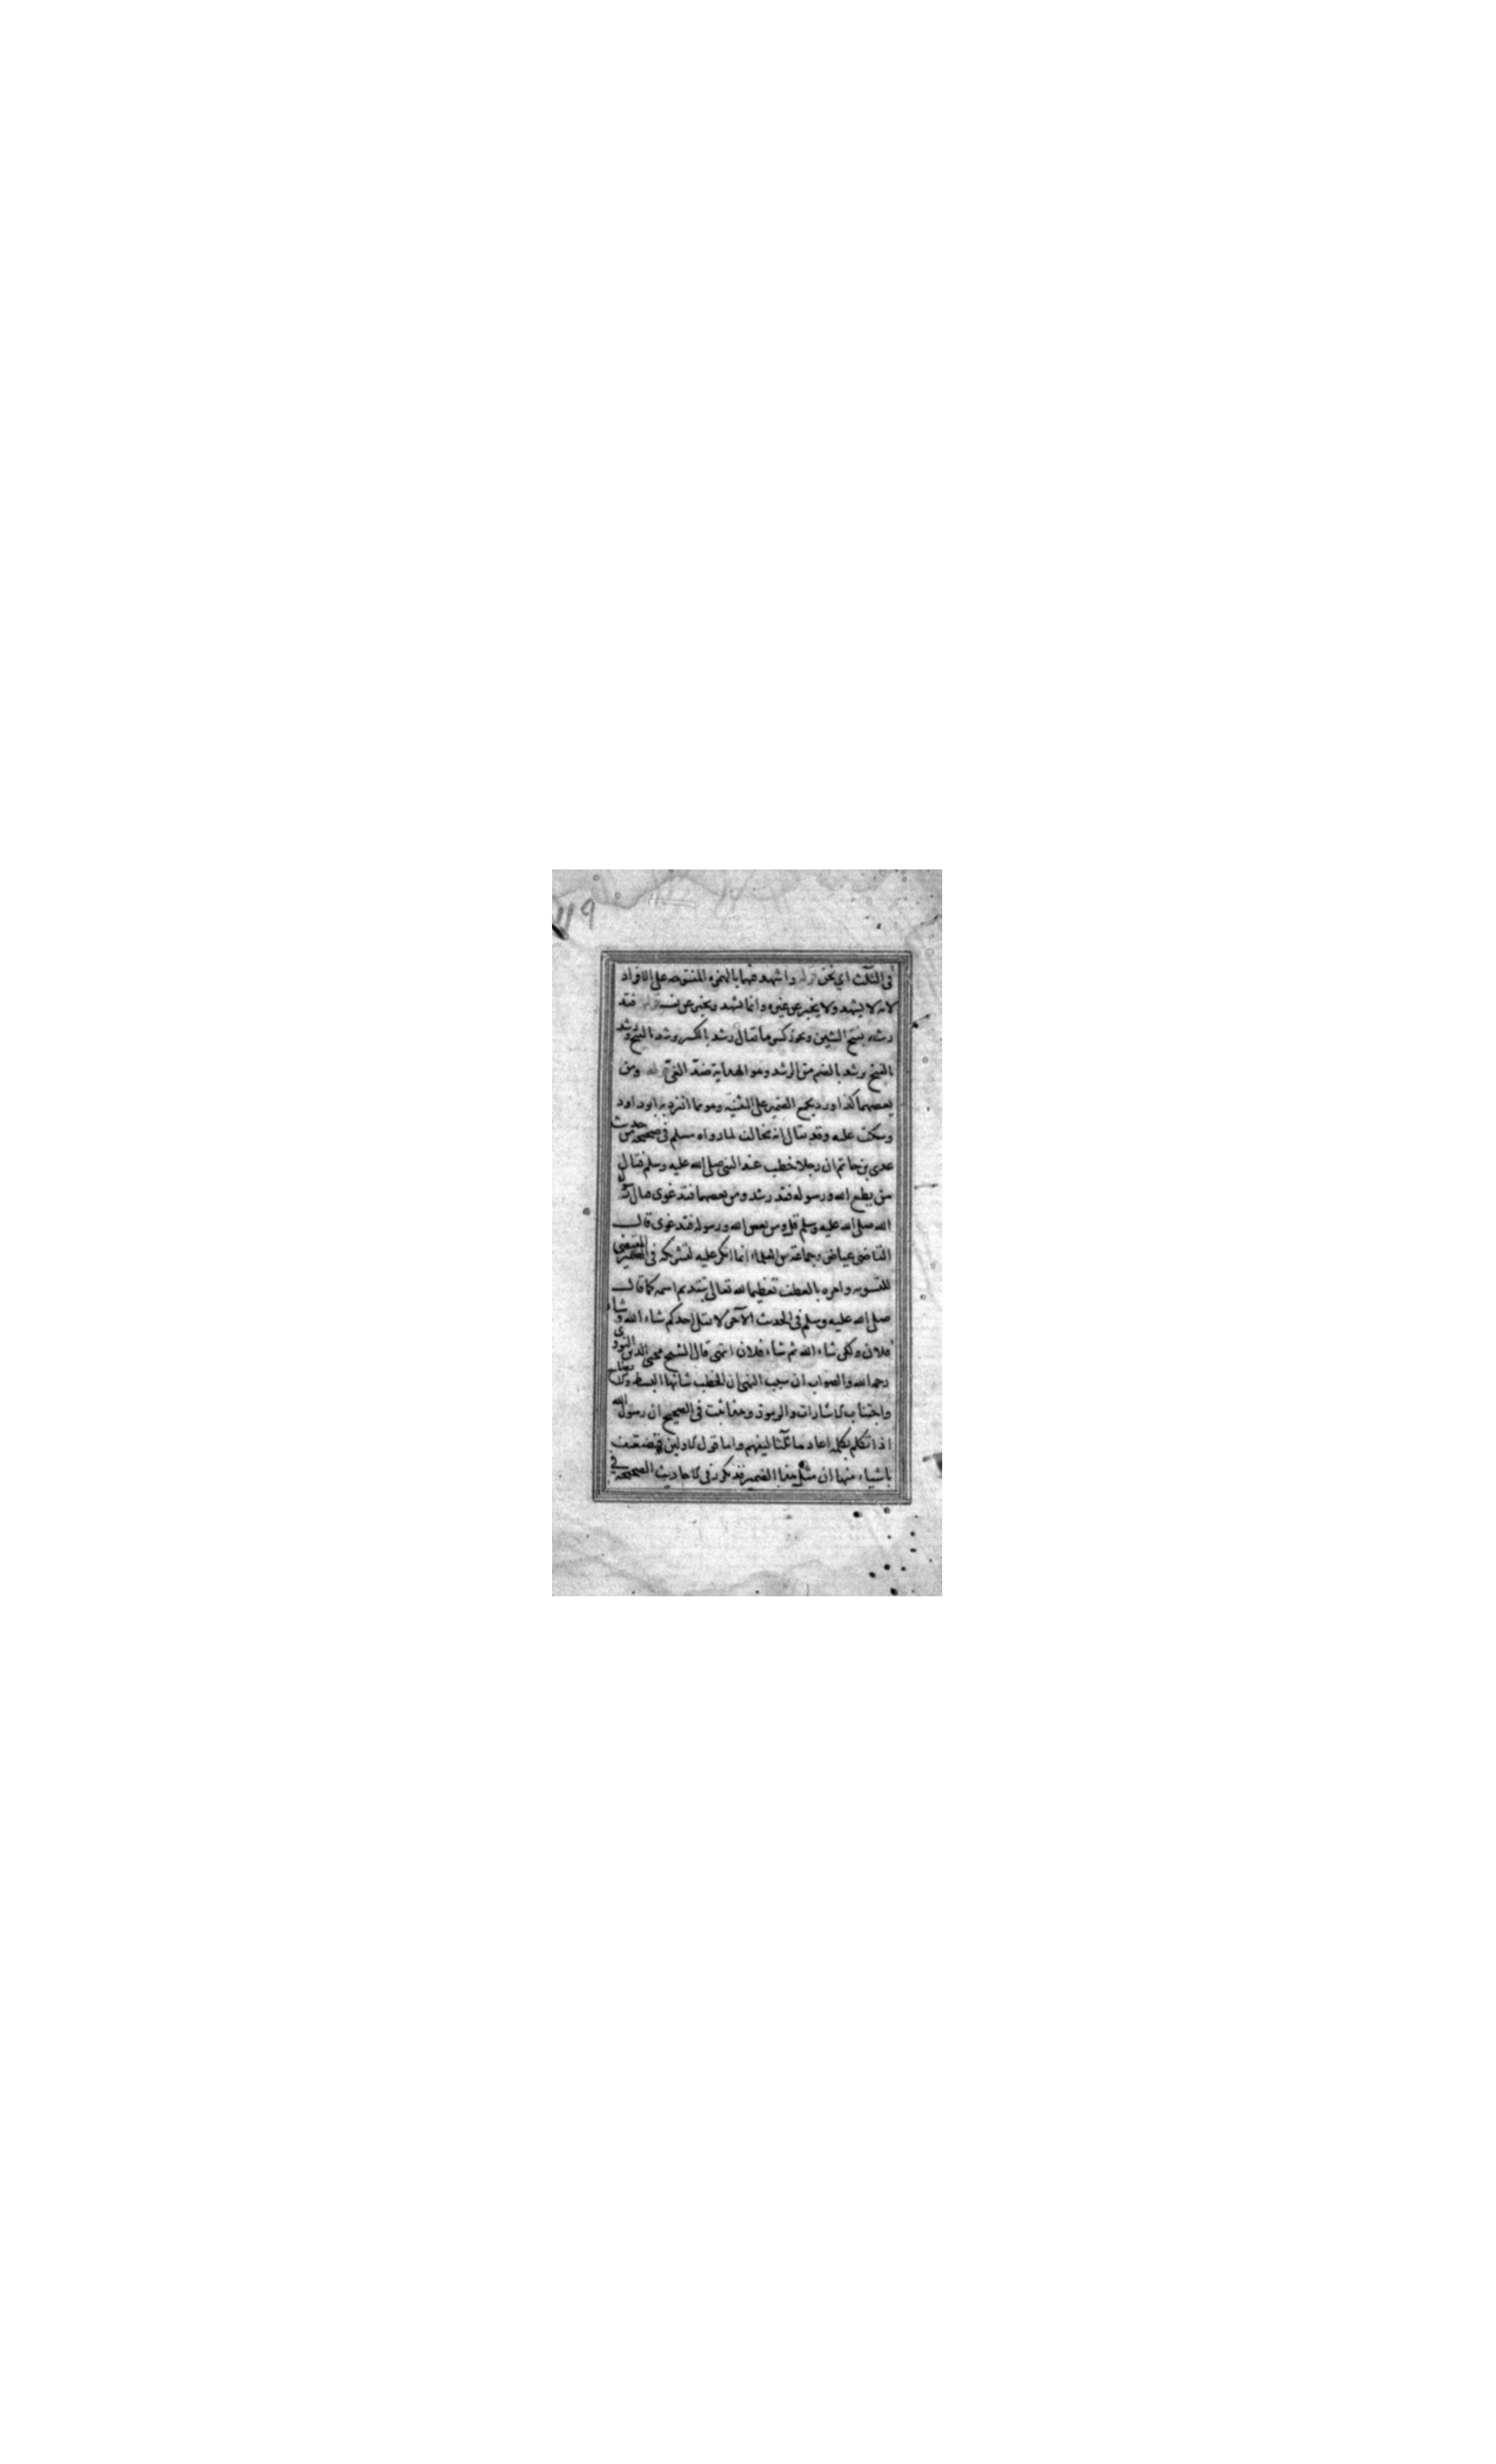 ١١٩
فى الثلث اى نحن قوله واشهد ضها بالهمزه المفتوحه على الافراد
لانه لا يشهد ولا يخبر عن غيره وانما يشهد ويخبر عن نفسه قوله فقد
رشد بفتح الشين ويجوز كسرها يقال رشد بالكسر يرشد بالفتح ورشد
بالفتح يرشد بالضم من الرشد وهو الهداية ضد الغى قوله ومن
يعصهما كذا ورد بجمع الضمير على التثنيه وهو مما انفرد به ابو داود
وسكت عليه وقد يقال انه مخالف لما رواه مسلم فى صحيحه من حديث
عدى بن حاتم ان رجلا خطب عند النبى صلى الله عليه وسلم فقال
من يطع الله ورسوله فقد رشد ومن يعصهما فقد غوى فقال
الله صلى الله عليه وسلم قل ومن يعص الله ورسوله فقد غوى قال
القاضى عياض وجماعة من العلماء انما انكر عليه لتشريكه فى الضمير المقتضى
للتسويه وامره بالعطف تعظيما لله تعالى بتقديم اسمه كما قال
صلى الله عليه وسلم فى الحديث الآخر لا يقل احدكم شاء الله وشاء
فلان ولكن شاء الله ثم شاء فلان انتهى قال الشيخ محيى الدين النووى
رحمه الله والصواب ان سبب النهى ان الخطب شانها البسط والايضاح
واجتناب الاشارات والرموز وهذا ثبت فى الصحيح ان رسول الله
اذا تكلم بكلمة اعادها ثلاثا ليفهم واما قول الاولين فيضعف
باشياء منها ان مثل هذا الضمير قد تكرر فى الاحاديث الصحيحة فى